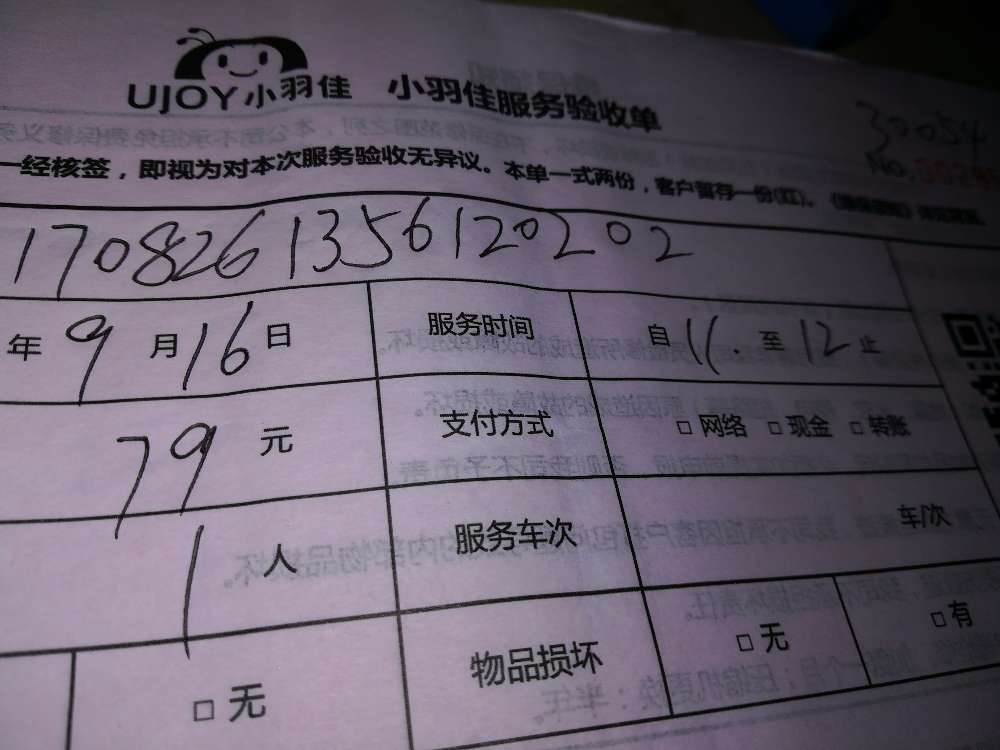 UJOY小羽佳 小羽佳服务验收单
30054
No.
一经核签，即视为对本次服务验收无异议。本单一式两份，客户暂存一份(红)。
170826135612 0202
年 9 月 16 日 服务时间 自 11. 至 12 止
79 元 支付方式 □ 网络 □ 现金 □ 转账
1 人 服务车次 车/次
□ 无 物品损坏 □ 无 □ 有